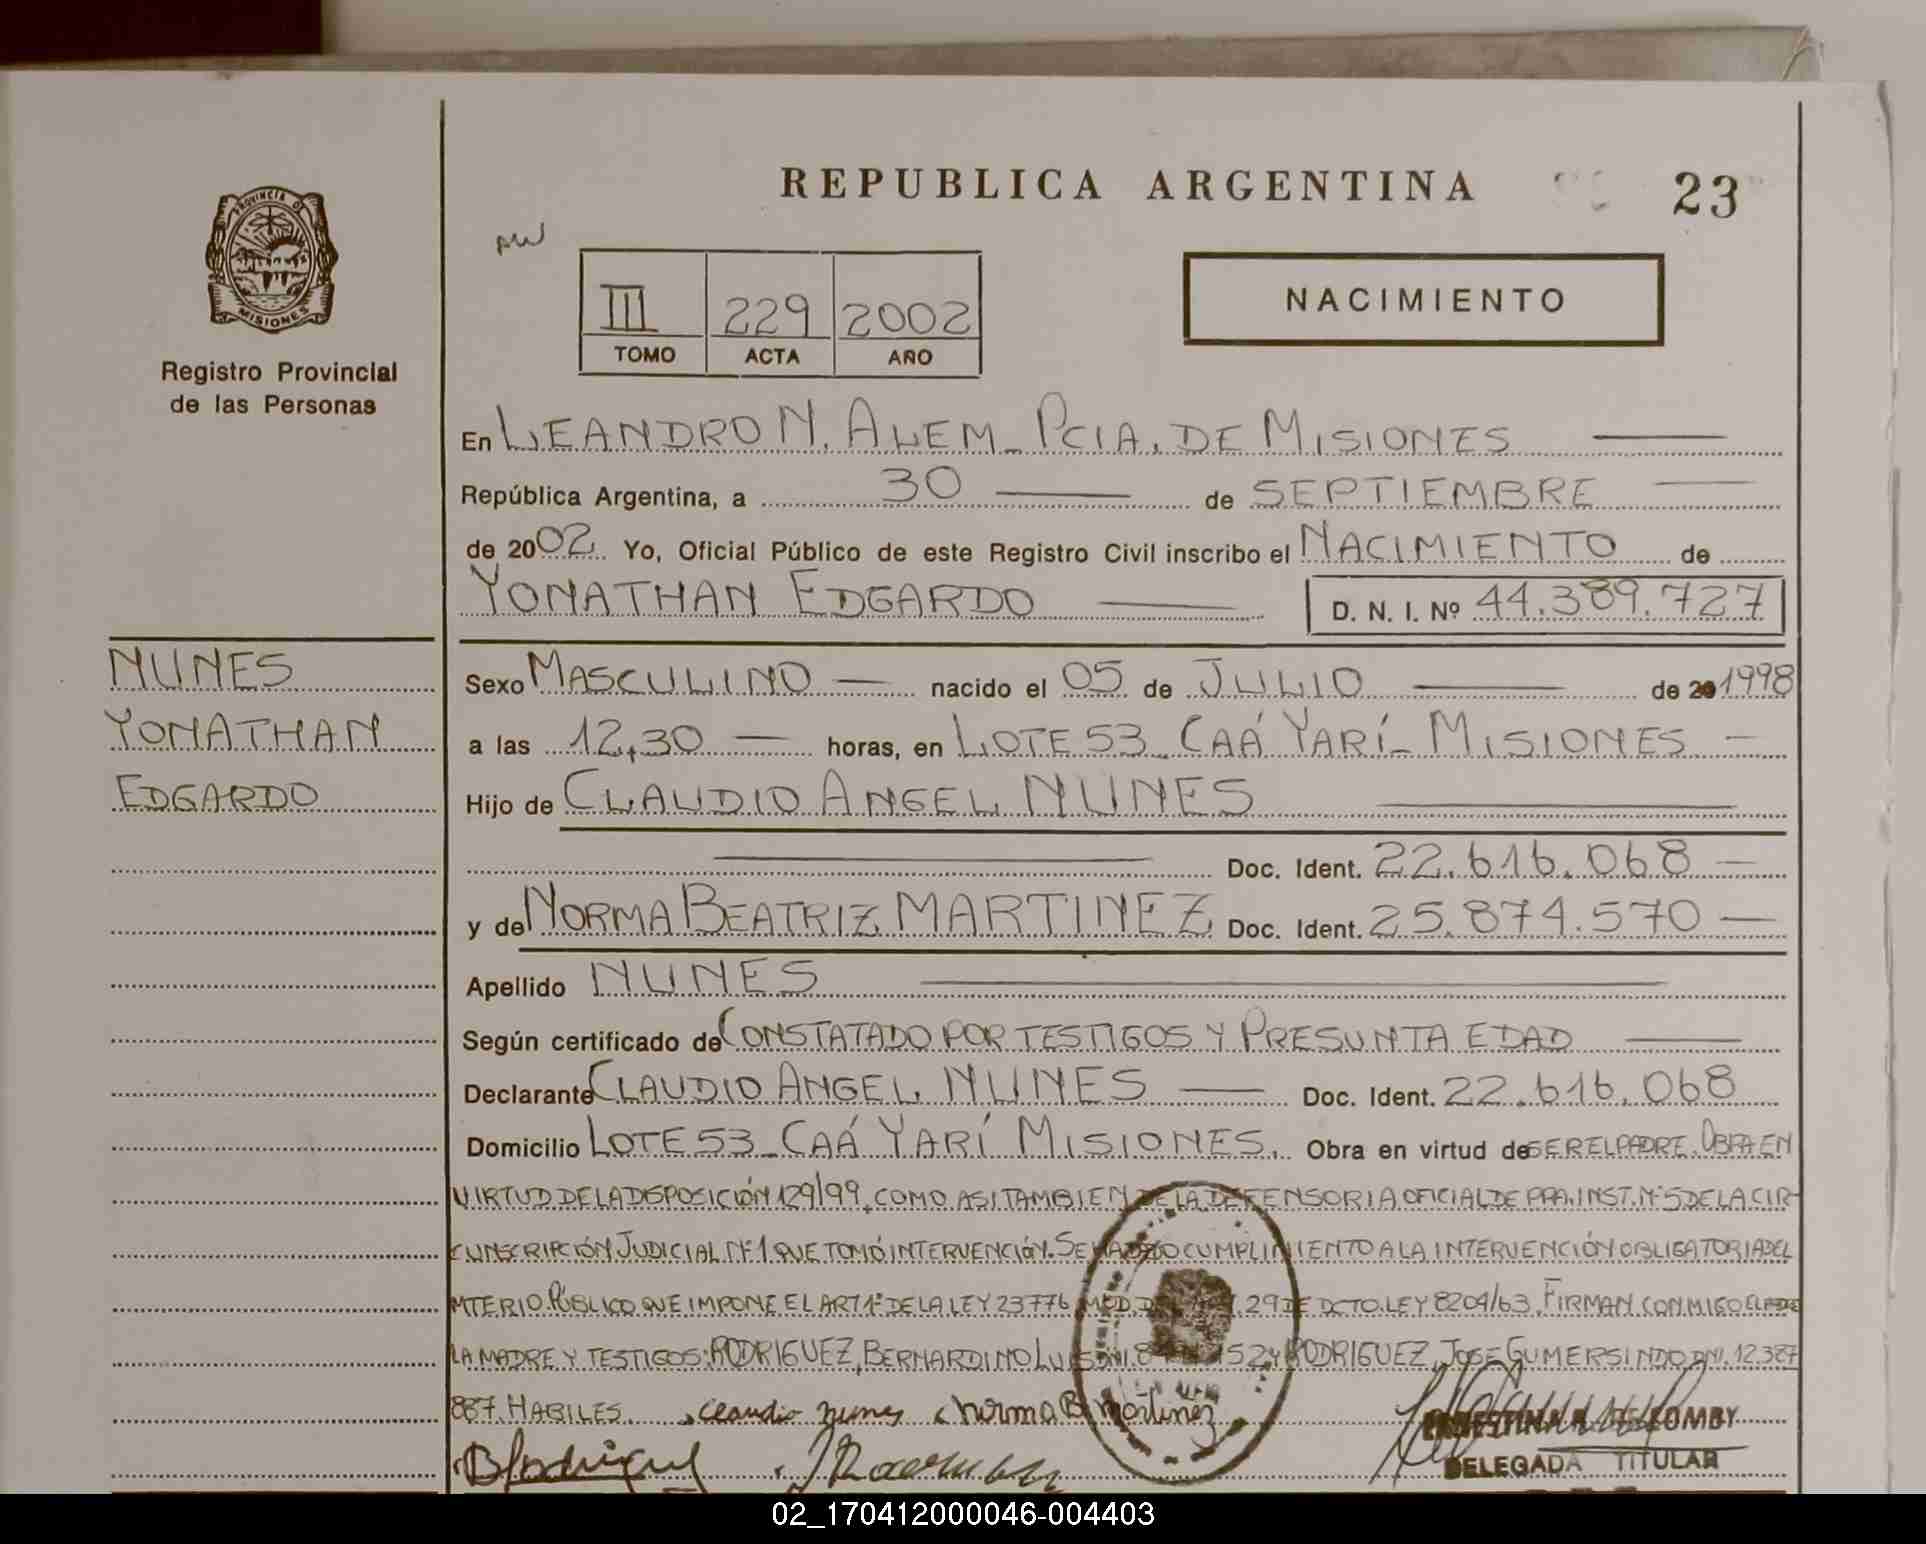 REPUBLICA ARGENTINA
23
PROVINCIA D
MISIONES
Registro Provincial
de las Personas
III 229 2002
TOMO ACTA AÑO
NACIMIENTO
En LEANDRO N. ALEM - PCIA. DE MISIONES
República Argentina, a 30 de SEPTIEMBRE
de 2002 Yo, Oficial Público de este Registro Civil inscribo el NACIMIENTO de
YONATHAN EDGARDO D. N. I. Nº 44.389.727
NUNES
YONATHAN
EDGARDO
Sexo MASCULINO nacido el 05 de JULIO de 1998
a las 12,30 horas, en LOTE 53 - CAÁ YARÍ - MISIONES
Hijo de CLAUDIO ANGEL NUNES
Doc. Ident. 22.616.068
y de NORMA BEATRIZ MARTINEZ Doc. Ident. 25.874.570
Apellido NUNES
Según certificado de CONSTATADO POR TESTIGOS Y PRESUNTA EDAD
Declarante CLAUDIO ANGEL NUNES Doc. Ident. 22.616.068
Domicilio LOTE 53 - CAÁ YARÍ MISIONES. Obra en virtud de SER EL PADRE. OBRA EN
VIRTUD DE LA DISPOSICIÓN 129/99, COMO ASI TAMBIEN DE LA DEFENSORIA OFICIAL DE PRA. INST. Nº 5 DE LA CIR-
CUNSCRIPCIÓN JUDICIAL Nº 1 QUE TOMÓ INTERVENCIÓN. SE HA DADO CUMPLIMIENTO A LA INTERVENCIÓN OBLIGATORIA DEL
MTERIO. PÚBLICO QUE IMPONE EL ART 1º DE LA LEY 23776 MOD. DEL ART. 29 DE DCTO. LEY 8204/63. FIRMAN CONMIGO EL PADRE
LA MADRE Y TESTIGOS: RODRIGUEZ, BERNARDINO LUIS DNI. 52 Y RODRIGUEZ, JOSE GUMERSINDO DNI. 12.387
887. HABILES. Claudio nunes Norma B Martinez
DELEGADA TITULAR
02_170412000046-004403